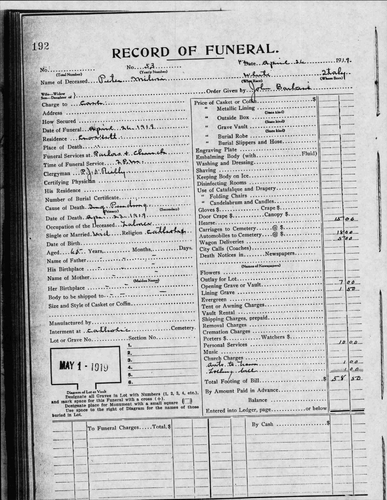 192
RECORD OF FUNERAL.
No. No. 53 Date April 26 1919.
(Total Number) (Yearly Number)
Name of Deceased Peter White Italy.
(What Race) (Where Born)
Order Given by John
Charge to Cash
Address
How Secured
Date of Funeral April 26, 1919
Residence
Place of Death
Funeral Services at Parlors & Church
Time of Funeral Service 2 P.M.
Clergyman P.J. Reilly
Certifying Physician
His Residence
Number of Burial Certificate
Cause of Death
Date of Death 1919
Occupation of the Deceased Laborer
Single or Married Wid. Religion Catholic
Date of Birth
Aged 65 Years, Months, Days
Name of Father
His Birthplace
Name of Mother
(Maiden Name)
Her Birthplace
Body to be shipped to
Size and Style of Casket or Coffin
Manufactured by
Interment at Catholic Cemetery.
Lot or Grave No. Section No.
1.
2.
3.
4.
5.
6.
MAY 1 - 1919
Diagram of Lot or Vault
Designate all Graves in Lot with Numbers (1, 2, 3, 4, etc.),
and mark space for this Funeral with a cross (+).
Designate place for Monument with a small square
Use space to the right of Diagram for the names of those
buried in Lot.
Price of Casket or Coffin
" Metallic Lining
" Outside Box
" Grave Vault
" Burial Robe
" Burial Slippers and Hose
Engraving Plate
Embalming Body (with Fluid)
Washing and Dressing
Shaving
Keeping Body on Ice
Disinfecting Rooms
Use of Catafalque and Drapery
" Folding Chairs
" Candelabrum and Candles
Gloves $ Crape $
Door Crape $ Canopy $
Hearse 15 00
Carriages to Cemetery @ $
Automobiles to Cemetery @ $ 18 00
Wagon Deliveries 5 00
City Calls (Coaches)
Death Notices in Newspapers.
(Names of Newspapers)
Flowers
Outlay for Lot
Opening Grave or Vault 7 00
Lining Grave 1 50
Evergreen
Tent or Awning Charges
Vault Rental
Shipping Charges, prepaid
Removal Charges
Cremation Charges
Porters $ Watchers $
Personal Services 10 00
Music
Church Charges
Auto to Train 1 00
Tolling bell 1 00
Total Footing of Bill $ 58 50
By Amount Paid in Advance
Balance
Entered into Ledger, page or below
To Funeral Charges Total, $ By Cash $